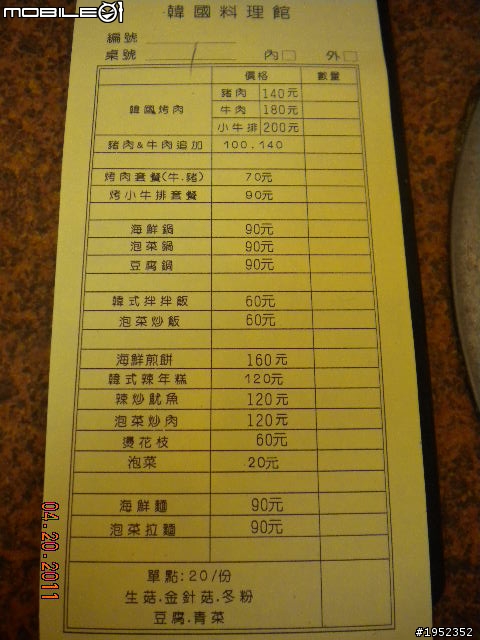 MOBILE01
韓國料理館
編號
桌號 內□ 外□
價格 數量
韓國烤肉 豬肉 140元
牛肉 180元
小牛排 200元
豬肉&牛肉追加 100.140
烤肉套餐(牛.豬) 70元
烤小牛排套餐 90元
海鮮鍋 90元
泡菜鍋 90元
豆腐鍋 90元
韓式拌拌飯 60元
泡菜炒飯 60元
海鮮煎餅 160元
韓式辣年糕 120元
辣炒魷魚 120元
泡菜炒肉 120元
燙花枝 60元
泡菜 20元
海鮮麵 90元
泡菜拉麵 90元
單點:20/份
生菇.金針菇.冬粉
豆腐.青菜
04.20.2011
#1952352